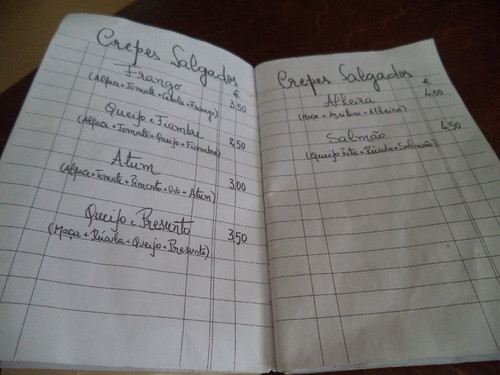 Crepes Salgados
€
Frango 3,50
(Alface + Tomate + Cebola + Frango)
Queijo + Fiambre 2,50
(Alface + Tomate + Queijo + Fiambre)
Atum 3,00
(Alface + Tomate + Pimento + Ovo + Atum)
Queijo e Presunto 3,50
(Maça + Rúcula + Queijo + Presunto)
Crepes Salgados
€
Alheira 4,00
(Maça + + Alheira)
Salmão 4,50
(Queijo + Rúcula + Salmão)